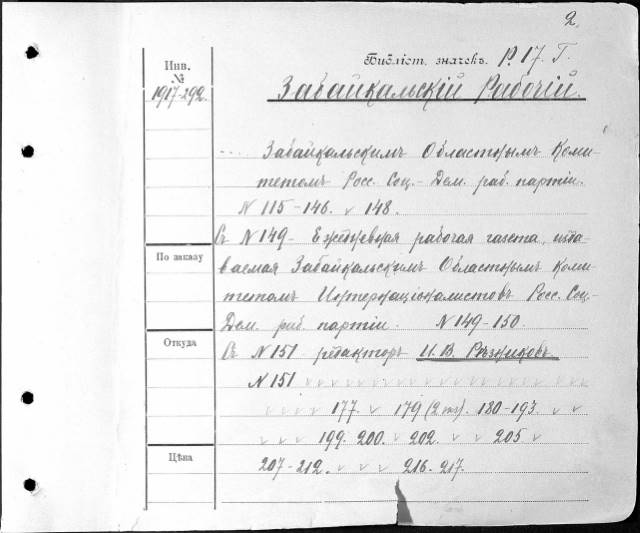 2.
Инв.
№
1917-292.
Библіот. значекъ. Р. 17. Г.
Забайкальскій Рабочій.
.... Забайкальскимъ Областнымъ Коми-
тетомъ Росс. Соц.-Дем. раб. партіи.
N 115-146. v 148.
Съ N 149- Ежедневная рабочая газета, изда-
По заказу
ваемая Забайкальскимъ Областнымъ Коми-
тетомъ Интернаціоналистовъ Росс. Соц.-
Дем. раб. партіи. N 149-150.
Откуда
Съ N 151 редакторъ И. В. Рѣзниковъ.
N 151 v v v v v v v v v v v v v
v v v v 177. v 179 (2 экз). 180-193. v v
v v v 199. 200. v 202. v v 205 v
Цѣна
207-212. v v v 216. 217.